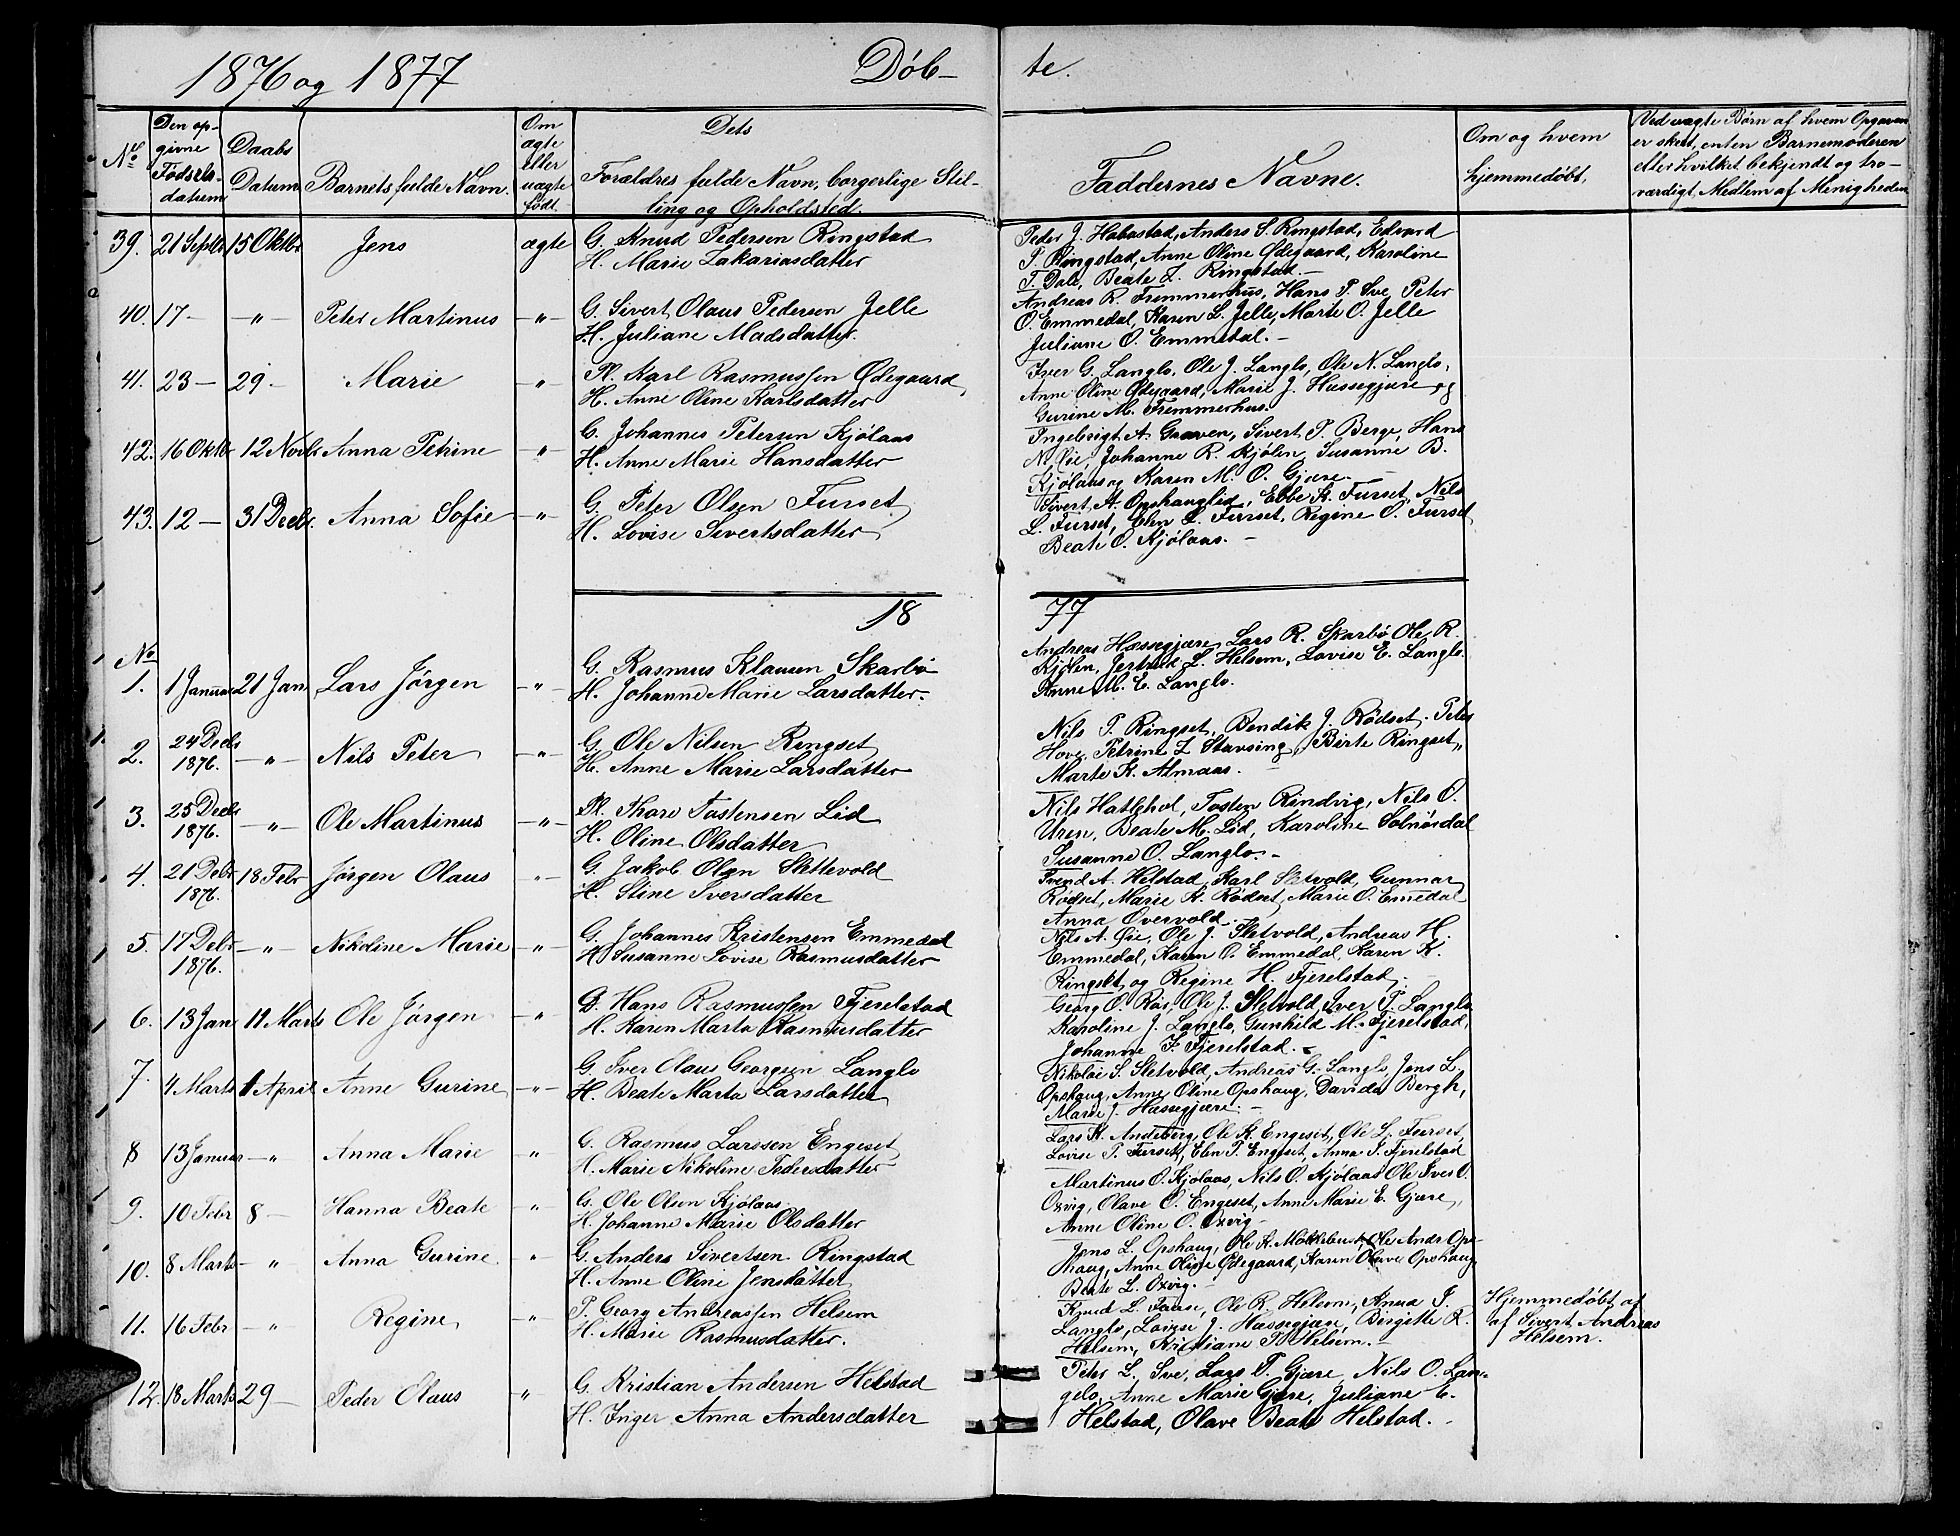 1876 og 1877
Døb-
te.
No
Den op-
givne
Fødsels-
datum
Daabs
Datum
Barnets fulde Navn.
Om
ægte
eller
uægte
født.
Dets
Forældres fulde Navn, borgerlige Stil-
ling og Opholdsted.
Faddernes Navne.
Om og hvem
hjemmedøbt.
Ved uægte Børn af hvem Opgaven
er skeet, enten Barnemoderen
eller hvilket bekjendt og tro-
værdigt Medlem af Menigheden
39. 21 Septbr 15 Oktbr Jens ægte G. Knud Pedersen Ringstad
H. Marie Zakariasdatter
Peder J. Habostad, Anders S. Ringstad, Edvard
P. Ringstad, Anne Oline Ødegaard, Karoline
T. Dale, Beate Z. Ringstad. —
40. 17 - -"- Peter Martinus -"- G. Sivert Olaus Pedersen Jelle
H. Juliane Madsdatter.
Andreas R. Fremmerhus, Hans P. Sve, Peter
O. Emmedal, Karen L. Jelle, Marte O. Jelle
Juliane O. Emmedal. —
41. 23 — 29. - Marie " Pl. Karl Rasmussen Ødegaard
H. Anne Oline Karlsdatter
Iver G. Langlo, Ole J. Langlo, Ole N. Langlo,
Anne Oline Ødegaard, Marie J. Hassegjære og
Gurine M. Fremmerhus.
42. 16 Oktbr 12 Novbr Anna Petrine -"- G. Johannes Petersen Kjølaas
H. Anne Marie Hansdatter
Ingebrigt A. Graven, Sivert P. Berge, Hans
N. Øie, Johanne R. Kjølen, Susanne B.
Kjølaas og Karen M. O. Gjære. -
43. 12 — 31 Decbr. Anna Sofie -"- G. Peter Olsen Furset
H. Lovise Sivertsdatter
Sivert A. Opshauglid, Ebbe K. Furset, Nils
L. Furset, Elen L. Furset, Regine O. Furset
Beate O. Kjølaas. —
18
77
No
1. 1 Januar 21 Jan Lars Jørgen -"- G. Rasmus Klausen Skarbø
H. Johanne Marie Larsdatter.
Andreas Hassegjære, Lars R. Skarbø, Ole R.
Kjølen, Jertrud L. Helsem, Lovise E. Langlo.
Anne M. E. Langlo.
2. 24 Decbr
1876. -"- Nils Peter -"- G. Ole Nilsen Ringset
H. Anne Marie Larsdatter
Nils P. Ringset, Bendik J. Rødset. Peter
Hove, Petrine L. Stavsing, Birte Ringset,
Marte K. Almaas.
3. 25 Decbr
1876. -"- Ole Martinus -"- Pl. Thore Tostensen Lid
H. Oline Olsdatter
Nils Hatlehol, Tosten Rindvig, Nils O.
Uren, Beate M. Lid, Karoline Solnørdal
Susanne O. Langlo. -
4. 21 Debr
1876. 18 Febr Jørgen Olaus -"- G. Jakob Olsen Slettevold
H. Stine Iversdatter
Trend A. Helstad, Karl Sletvold, Gunnar
Rødset, Marie K. Rødset, Marie O. Emedal
Anna Overvold.
5. 17 Debr
1876. -"- Nikoline Marie -"- G. Johannes Kristensen Emmedal
H. Susanne Lovise Rasmusdatter
Nils A. Øie, Ole J. Sletvold, Andreas H.
Emmedal, Karen O. Emmedal, Karen K.
Ringset, og Regine H. Fjerelstad.
6. 13 Jan 11 Marts Ole Jørgen -"- G. Hans Rasmussen Fjerelstad
H. Karen Marta Rasmusdatter
Georg O. Røs, Ole J. Sletvold, Iver P. Langlo
Karoline J. Langlo, Gunhild M. Fjerelstad,
Johanne J. Fjerelstad. -
7. 4 Marts 1 April Anne Gurine -"- G. Iver Olaus Georgsen Langlo
H. Beate Marta Larsdatter
Nikolai S. Sletvold, Andreas G. Langlo, Jens L.
Opshaug, Anne Oline Opshaug, Davida Bergh,
Marie J. Hassegjære. —
8 13 Januar -"- Anna Marie -"- G. Rasmus Larssen Engeset
H. Marie Nikoline Pedersdatter
Lars K. Andeberg, Ole K. Engeset, Ole L. Furset,
Lovise P. Furset, Elen P. Engeset, Anna J. Fjerelstad
9. 10 Febr 8 — Hanna Beate -"- G. Ole Olsen Kjølaas
H. Johanne Marie Olsdatter
Martinus O. Kjølaas, Nils O. Kjølaas Ole Iver O.
Oxvig, Olave O. Engeset, Anne Marie E. Gjære,
Anne Oline O. Oxvig -
10. 8 Marts - " Anna Gurine " G. Anders Sivertsen Ringstad
H. Anne Oline Jensdatter
Jens L. Opshaug, Ole K. Mokkebust, Ole Andr Ops-
haug, Anne Oline Ødegaard, Karen Olave Opshaug
Beate L. Oxvig. -
11. 16 Febr - " Regine -"- P. Georg Andreassen Helsem
H. Marie Rasmusdatter.
Knud L. Faase, Ole R. Helsem, Anna J.
Langlo, Lovise J. Hassegjære, Birgitte R.
Helsem, Kristiane P. Helsem.
Hjemmedøbt af
af Sivert Andreas
Helsem.
12. 18 Marts 29 — Peder Olaus " G. Kristian Andersen Helstad
H. Inger Anna Andersdatter
Peter L. Sve, Lars T. Gjære, Nils O. Lan-
gelo, Anne Marie Gjære, Juliane E.
Helstad, Olave Beate Helstad. -